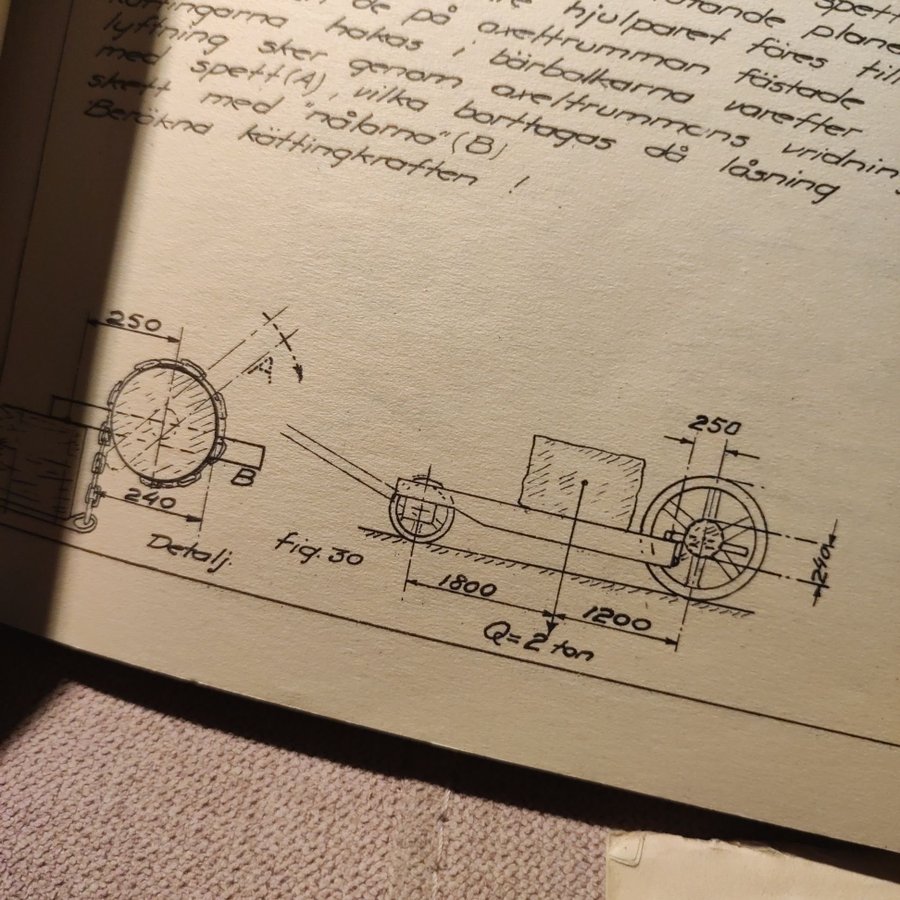 spett
plane
hjulparet föres till
de på axeltrumman fästade
kättingarna hakas i bärbalkarna varefter
lyftning sker genom axeltrummans vridning
med spett(A), vilka borttagas då låsning
skett med "nålarna" (B)
Beräkna kättingkraften !
250
A
B
240
Detalj.
fig. 30
250
240
1800
1200
Q=2 ton